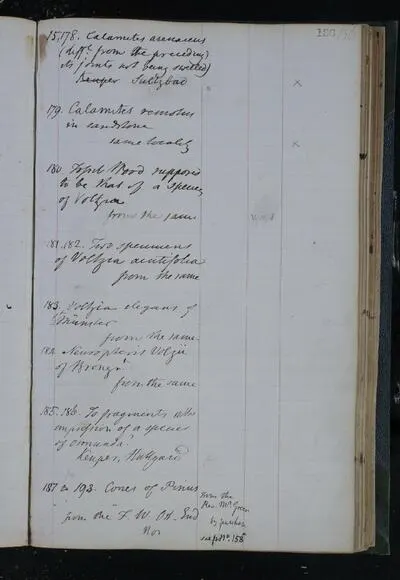 15,178. Calamites arenaceus
(diff.t from the preceding
its joints not being swelled)
Keuper Sultzbad
179. Calamites remotus
in sandstone
same locality
180 Fossil Wood supposed
to be that of a species
of Voltzia
from the same
181.182. Two specimens
of Voltzia acutifolia
from the same
183. Voltzia elegans of
Münster
from the same
184. Neuropteris Volzii
of Brongt
from the same
185.186. To fragments with
impression of a species
of Osmunda
Keuper,
187 to 193. Cones of Pinus
from the
Rev. Mr Green
by purchase
from the F. W. End
Nor